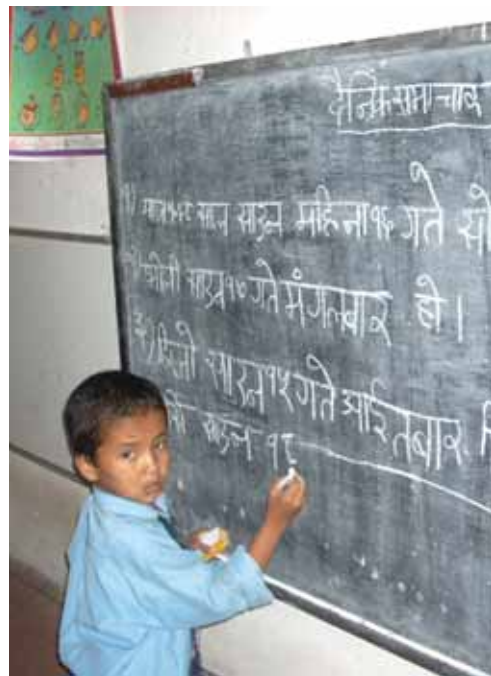 दैनिक समाचार
साल साउन महिना १६ गते सो
भोली साउन १७ गते मंगलबार हो।
३) हिजो साउन १५ गते आईतबार
साउन १६